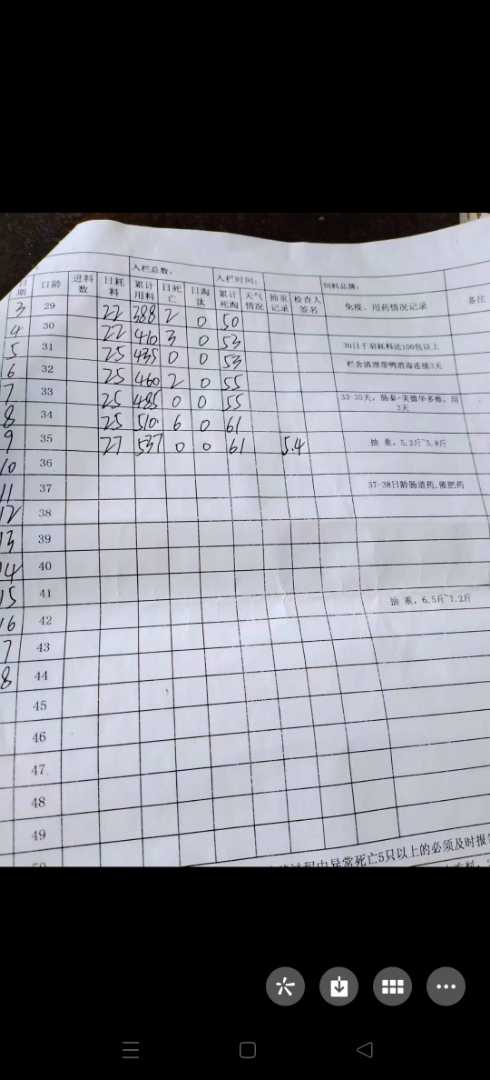 入栏总数： 入栏时间： 饲料品牌：
日期 日龄 进料数 日耗料 累计用料 日死亡 日淘汰 累计死淘 天气情况 抽重记录 检查人签名 免疫、用药情况记录 备注
3 29 22 388 2 0 50
4 30 22 410 3 0 53
5 31 25 435 0 0 53 30日千羽耗料达100包以上
6 32 25 460 2 0 55 栏舍清理带鸭消毒连续3天
7 33 25 485 0 0 55
8 34 25 510 6 0 61
9 35 27 537 0 0 61 5.4 抽 重，5.2斤~5.8斤
10 36
11 37 37-38日龄肠道药、催肥药
12 38
13 39
14 40
15 41 抽 重，6.5斤~7.2斤
16 42
7 43
8 44
45
46
47
48
49
异常死亡5只以上的必须及时报